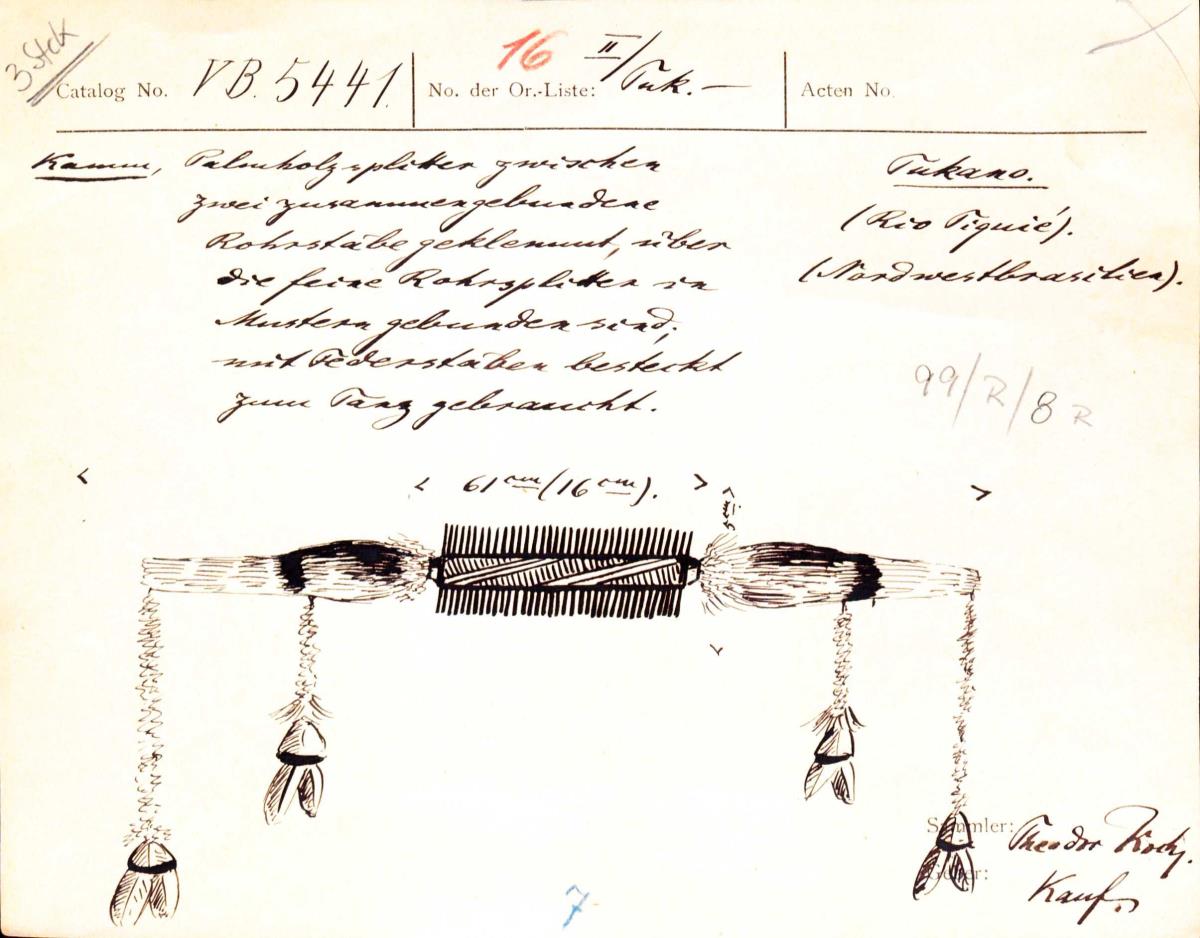 3 Stck
Catalog No. VB. 5441.
No. der Or.-Liste: 16 II/Tuk. —
Acten No.
Kamm, Palmholzsplitter zwischen
zwei zusammengebundene
Rohrstäbe geklemmt, über
die feine Rohrsplitter in
Mustern gebunden sind;
mit Federstäben besteckt
zum Tanz gebraucht.
Tukano.
(Rio Tiquié).
(Nordwestbrasilien).
99/R/8 R
61 cm (16 cm).
5 cm
Sammler: Theodor Koch.
Geber: Kauf.
7